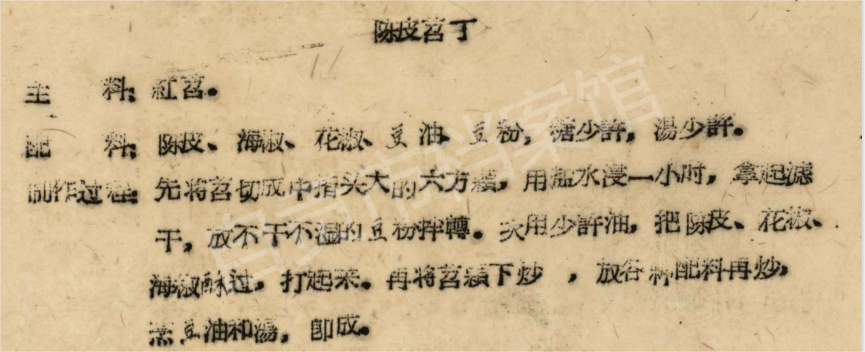 陈皮苕丁
主 料：紅苕。
配 料：陈皮、海椒、花椒、豆油、豆粉，糖少許，湯少許。
制作过程：先将苕切成中指头大的六方顆，用盐水浸一小时，拿起滤
干，放不干不湿的豆粉拌轉。次用少許油，把陈皮、花椒、
海椒酥过，打起来。再将苕顆下炒，放各种配料再炒，
烹豆油和湯，即成。